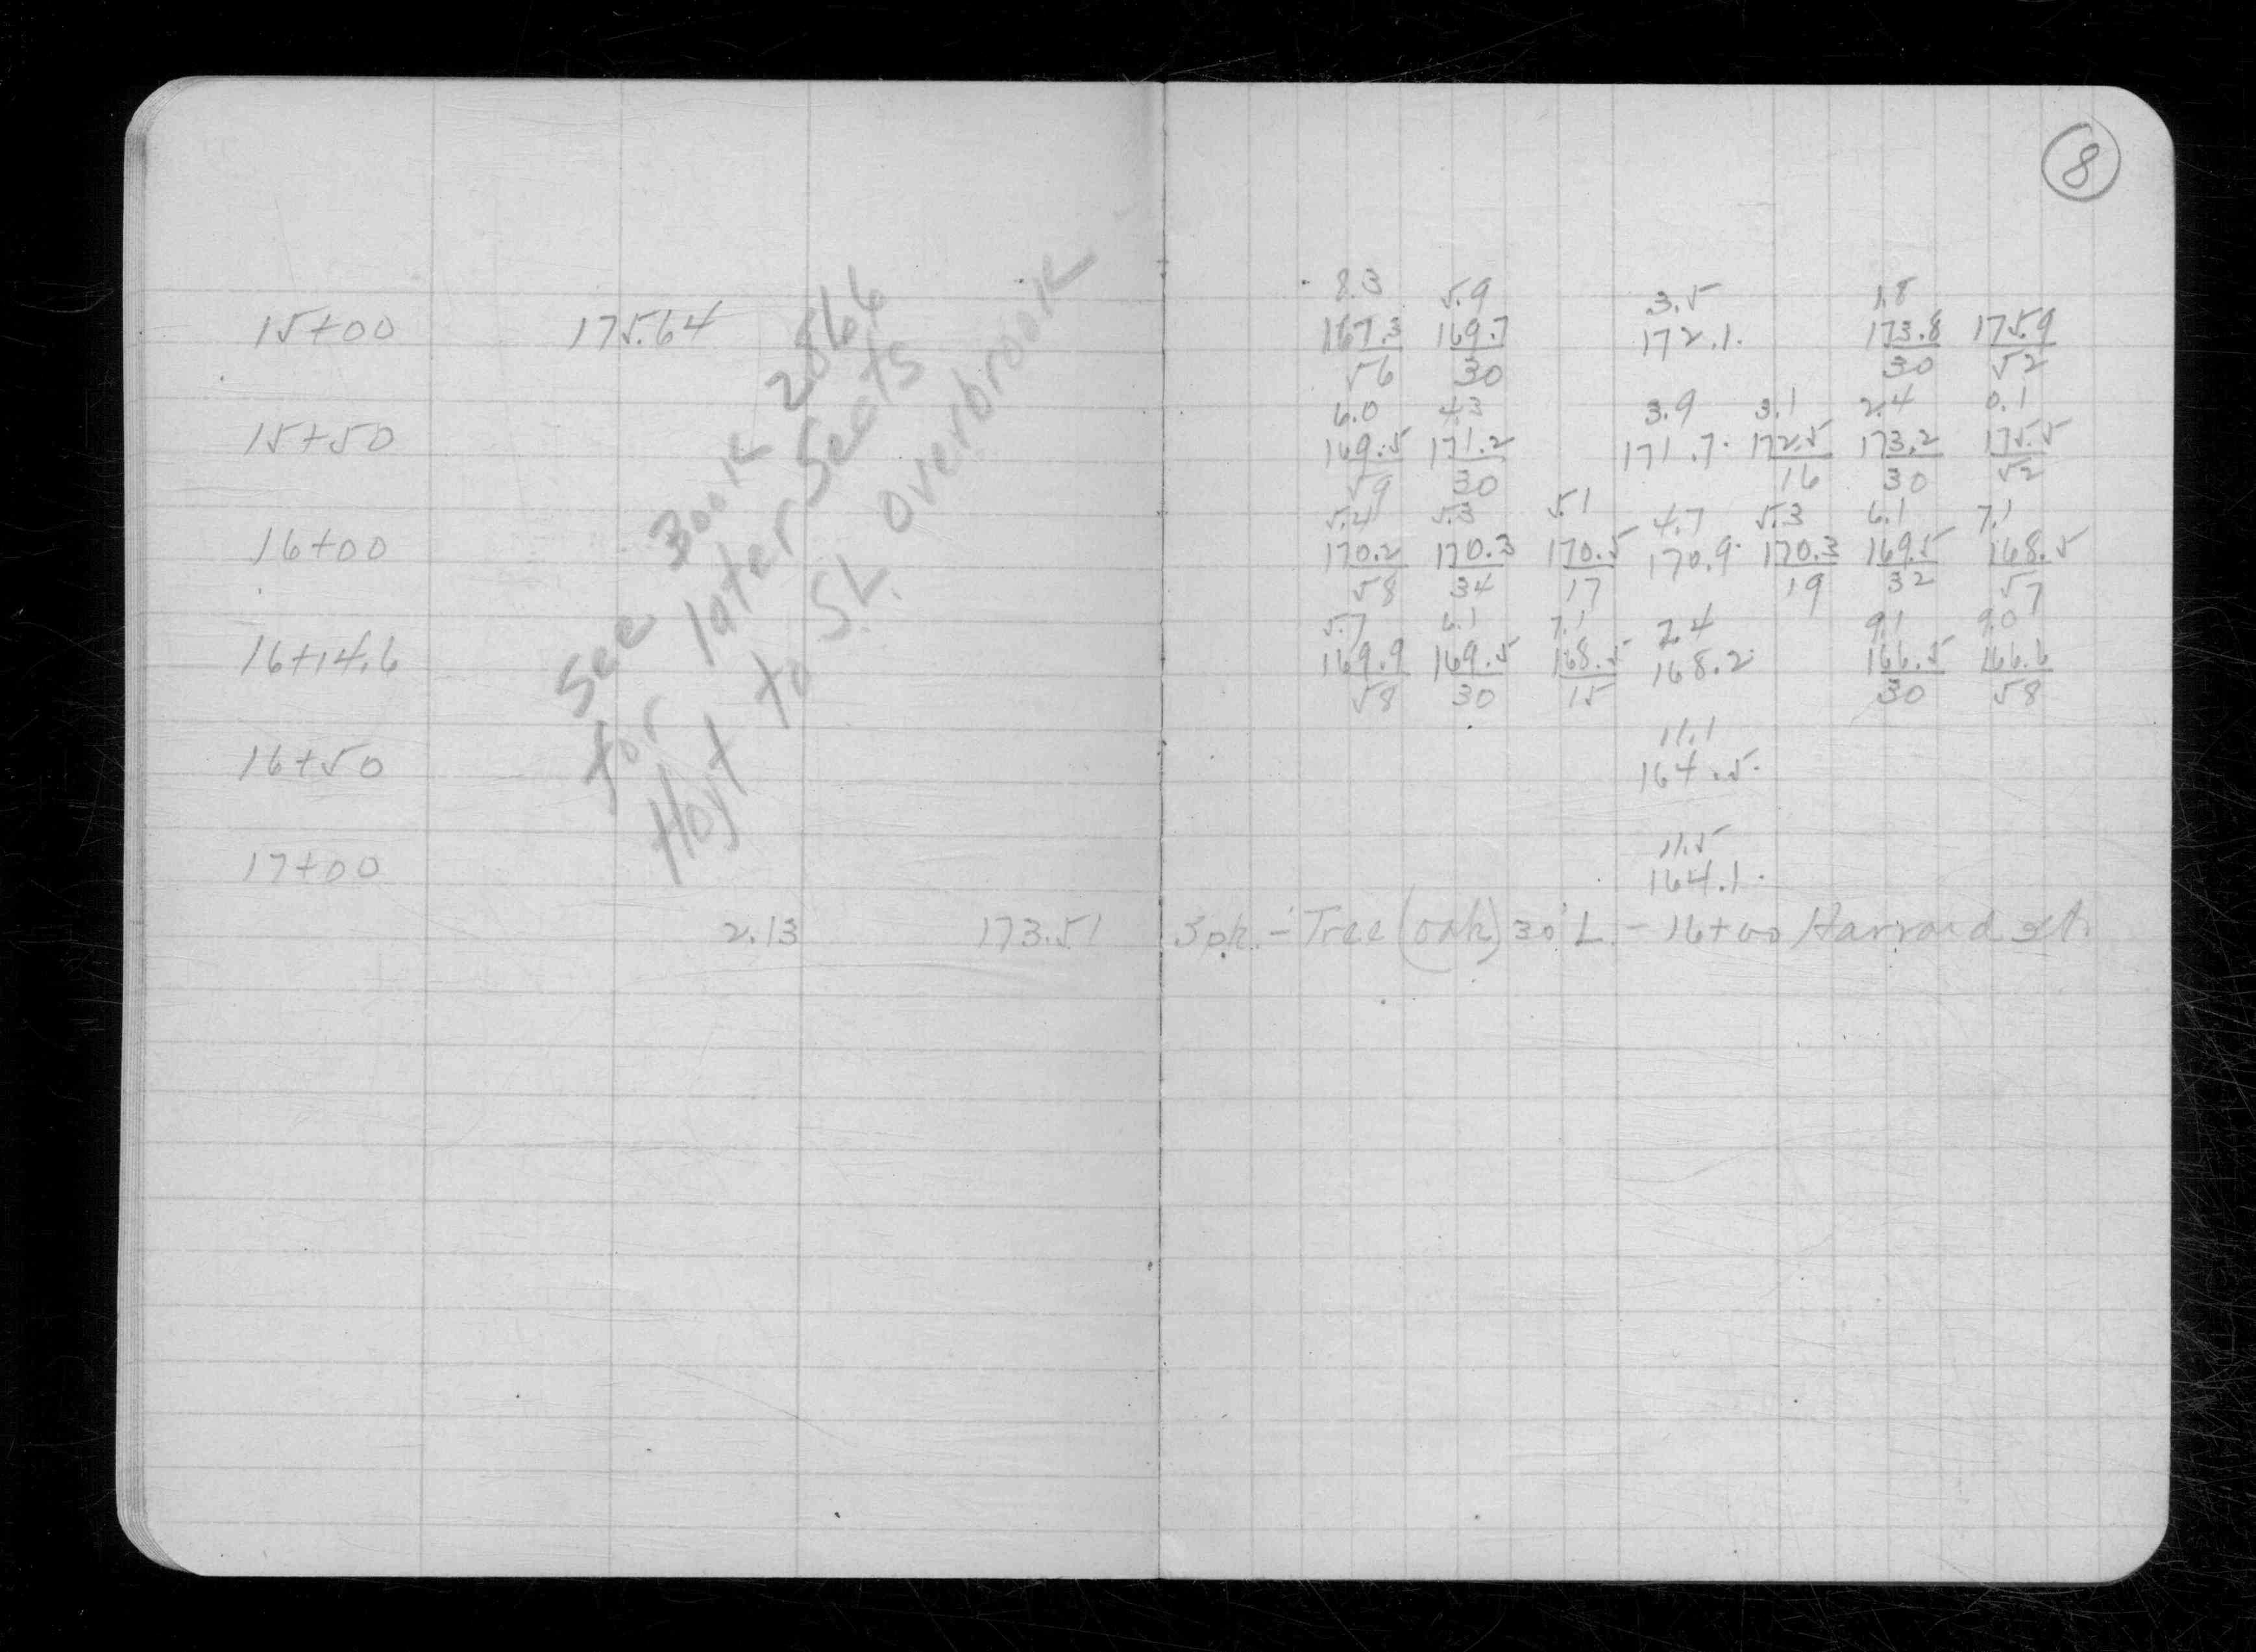 8
15+00 175.64
15+50
16+00
16+14.6
16+50
17+00
2.13 173.51
See Book 2866
for later Sects
Hoyt to SL. overbrook
8.3 5.9 3.5 1.8
167.3 169.7 172.1 173.8 175.9
56 30 30 52
6.0 4.3 3.9 3.1 2.4 0.1
169.5 171.2 171.7 172.5 173.2 175.5
59 30 16 30 52
5.4 5.3 5.1 4.7 5.3 6.1 7.1
170.2 170.3 170.5 170.9 170.3 169.5 168.5
58 34 17 19 32 57
5.7 6.1 7.1 7.4 9.1 9.0
169.9 169.5 168.5 168.2 166.5 166.6
58 30 15 30 58
11.1
164.5
11.5
164.1
Spk. - Tree (oak) 30' L. - 16+00 Harvard